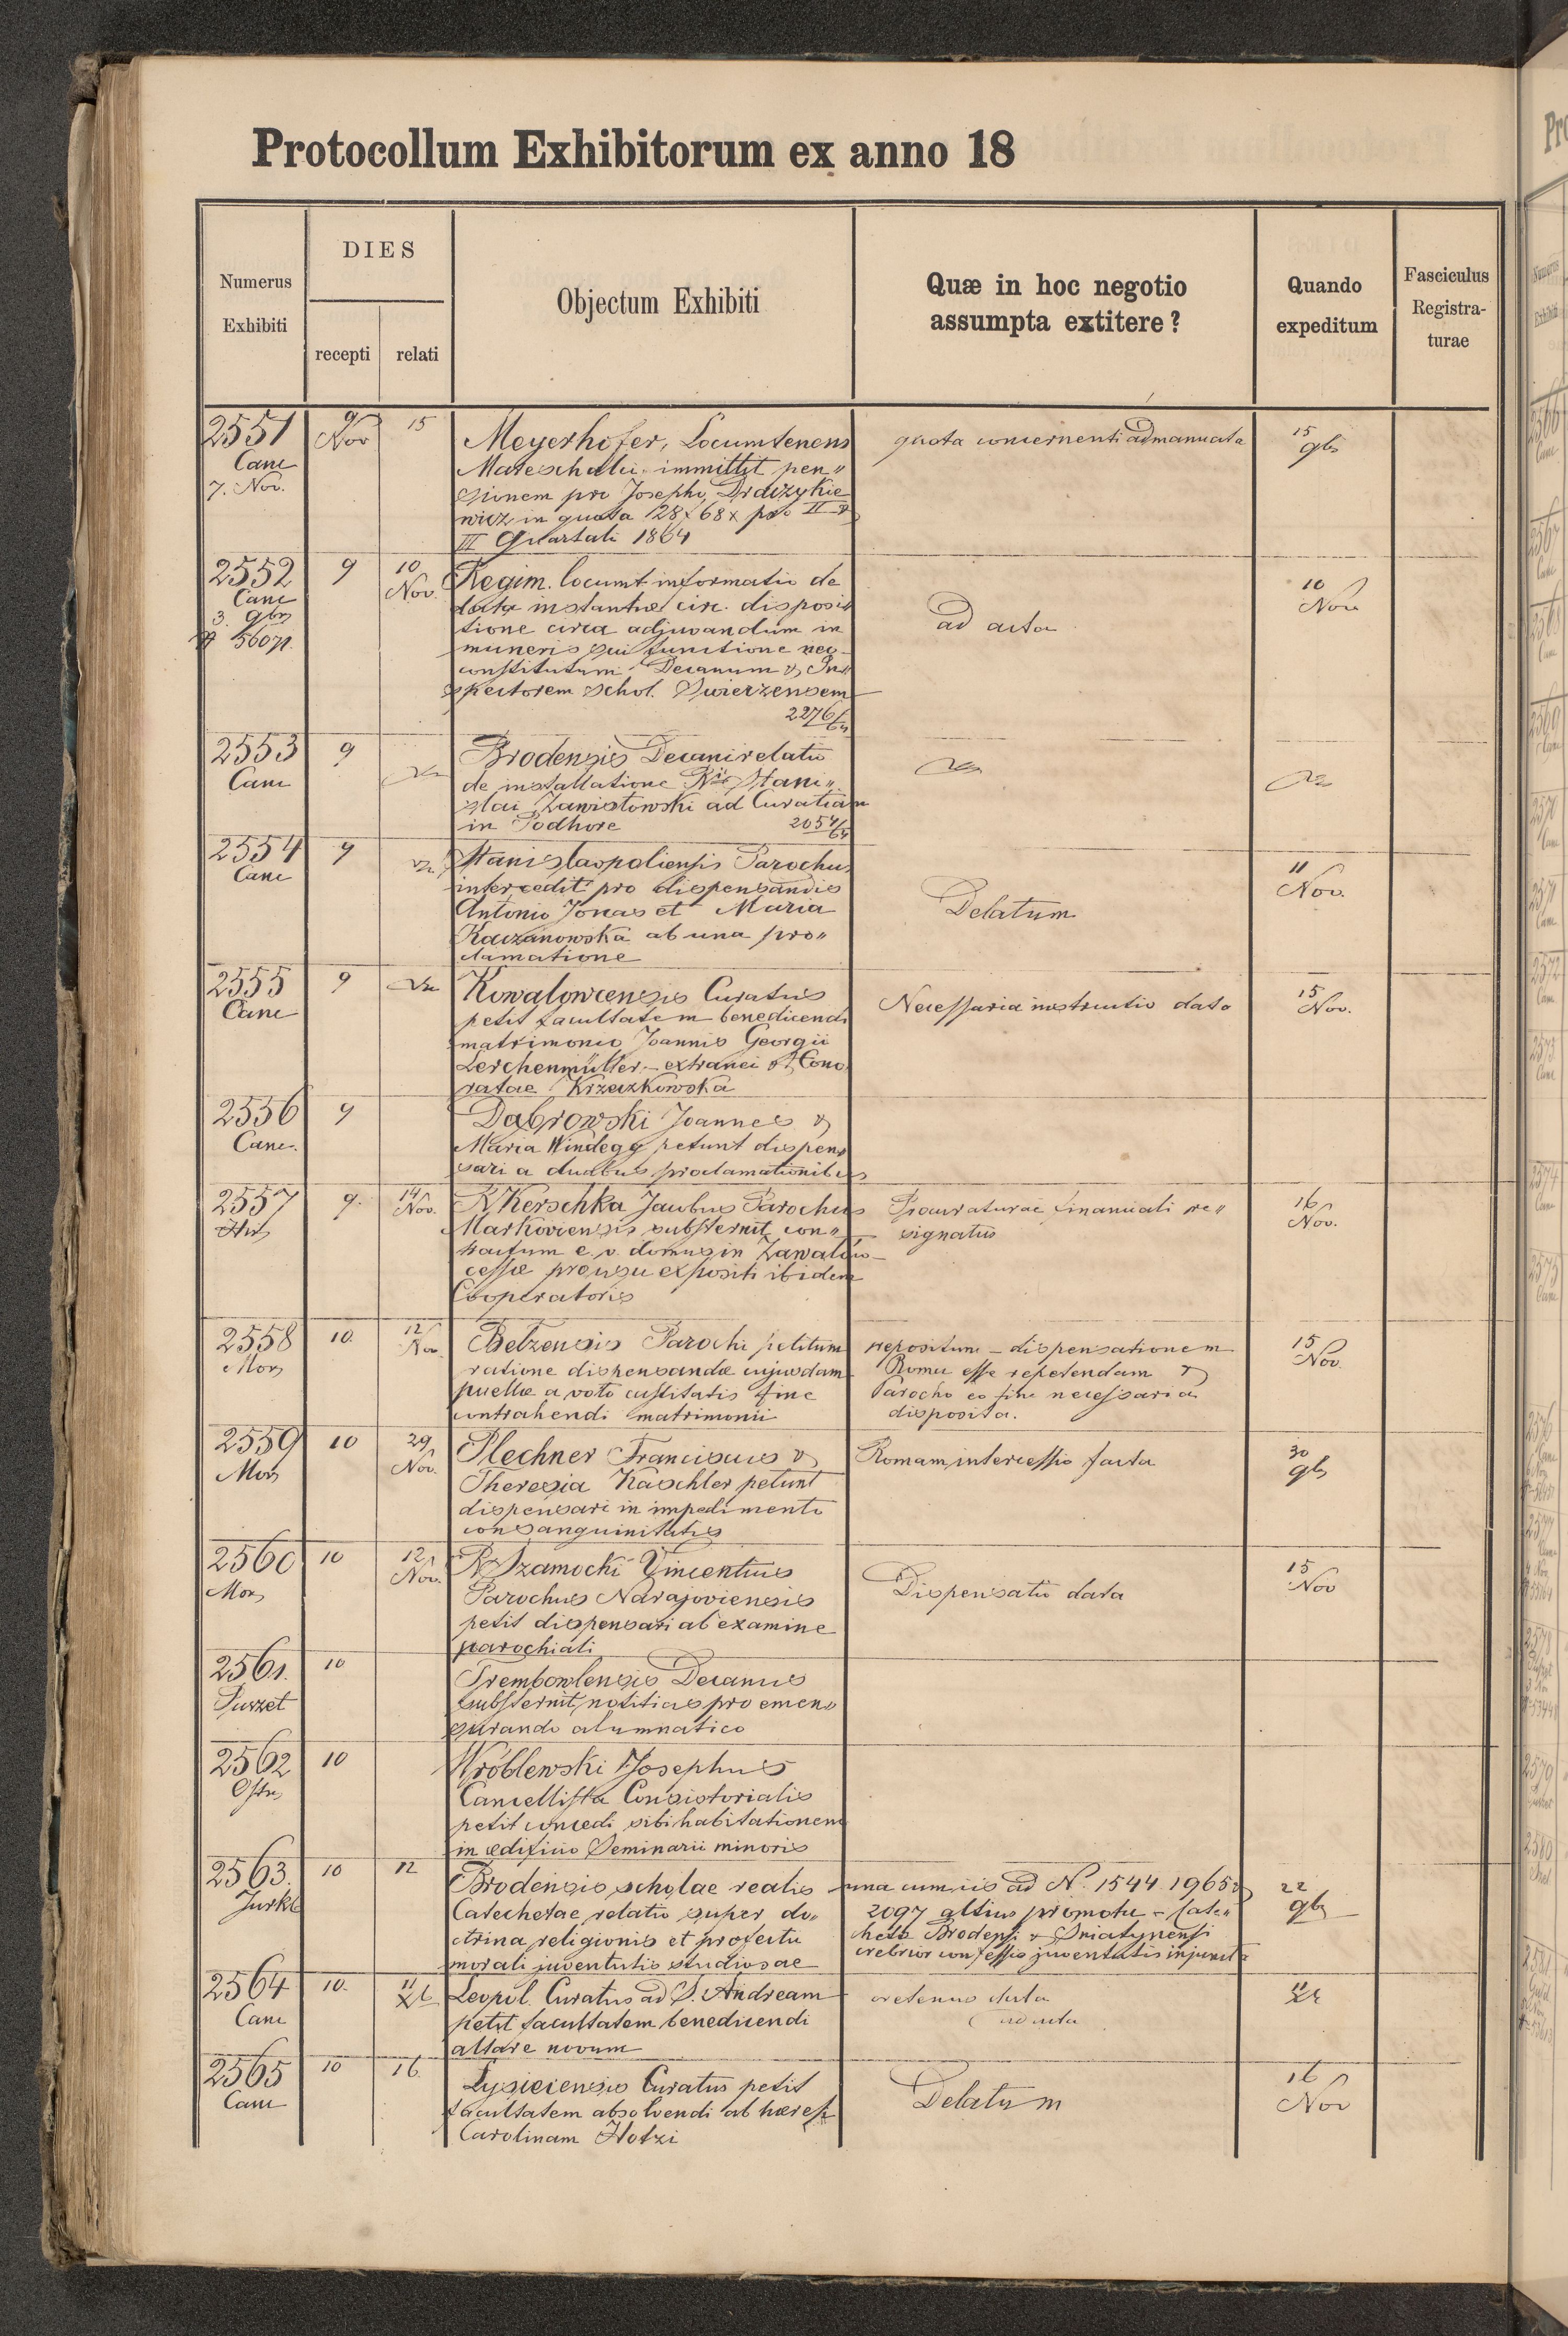 Protocollum Exhibitorum ex anno 18
Numerus
Exhibiti
DIES
recepti
relati
Objectum Exhibiti
Quæ in hoc negotio
assumpta extitere?
Quando
expeditum
Fasciculus
Registra-
turae
2551
Canc
7. Nov.
9
Nov
15
Meyerhofer, Locumtenens
immittit pen„
sionem pro Josepho
in quota 128 f 68 x pro II &
III Quartali 1864
quota concernenti admanuata
15
9br
2552
Canc
3. 9br
9
10
Nov.
Regim. locumt informatio de
data instantiae circ. disposi
tione circa adjuvandum in
muneris sui functione neo-
constitutum Decanum & In
spectorem schol. Swierzensem
2276/64
ad acta
10
Nov
2553
Canc
9
Brodensis Decani relatio
de installatione Rdi Stani„
slai Zawistowski ad Curatiam
in Podhore 2054/64
2554
Canc
9
Stanislaopoliensis Parochus
intercedit pro dispensandis
Antonio Jonas et Maria
Kaczanowska ab una pro„
clamatione
Delatum
11
Nov.
2555
Canc
9
Kowalowcensis Curatus
petit facultatem benedicendi
matrimonio Joannis Georgii
Lerchenmüller - extranei & Hono
ratae Krzeczkowska
Necessaria instructio data
15
Nov.
2556
Canc.
9
Dąbrowski Joannes &
Maria Windegg petunt dispen
sari a duabus proclamationibus
2557
9.
14
Nov.
R Kerschka Jacobus Parochus
Markoviensis substernit con„
tractum e. v. domus in Zawalów
cessae pro usu expositi ibidem
Cooperatoris
Procuraturae financiali re„
signatus
16
Nov.
2558
Mors
10.
12
Nov
Belzensis Parochi petitum
ratione dispensandae cujusdam
puellae a voto castitatis fine
contrahendi matrimonii
repositum - dispensationem
Roma esse repetendam &
Parocho eo fine necessaria
disposita.
15
Nov.
2559
Mors
10
29
Nov.
Plechner Franciscus &
Theresia Kaschler petunt
dispensari in impedimento
consanguinitatis
Romam intercessio facta
30
9br
2560
Mors
10
12
Nov.
R Szamocki Vincentius
Parochus Narajoviensis
petit dispensari ab examine
parochiali
Dispensatio data
15
Nov
2561.
10
Trembowlensis Decanus
substernit notitias pro emen
surando alumnatico
2562
10
Wróblewski Josephus
Cancellista Consistorialis
petit concedi sibi habitationem
in ædificio Seminarii minoris
2563.
10
12
Brodensis scholae realis
Catechetae relatio super do„
ctrina religionis et profectu
morali juventutis studiosae
una cum iis ad N. 1544 1965 &
2097 altius promota - Cate„
cheta Brodensi & Sniatynensi
crebrior confessio juventutis injuncta
22
9br
2564
Canc
10.
11
Leopol. Curatus ad S. Andream
petit facultatem benedicendi
altare novum
oretenus data
ad acta
11
2565
Canc
10
16
Lysieciensis Curatus petit
facultatem absolvendi ab hæresi
Carolinam Hotzi
Delatum
16
Nov